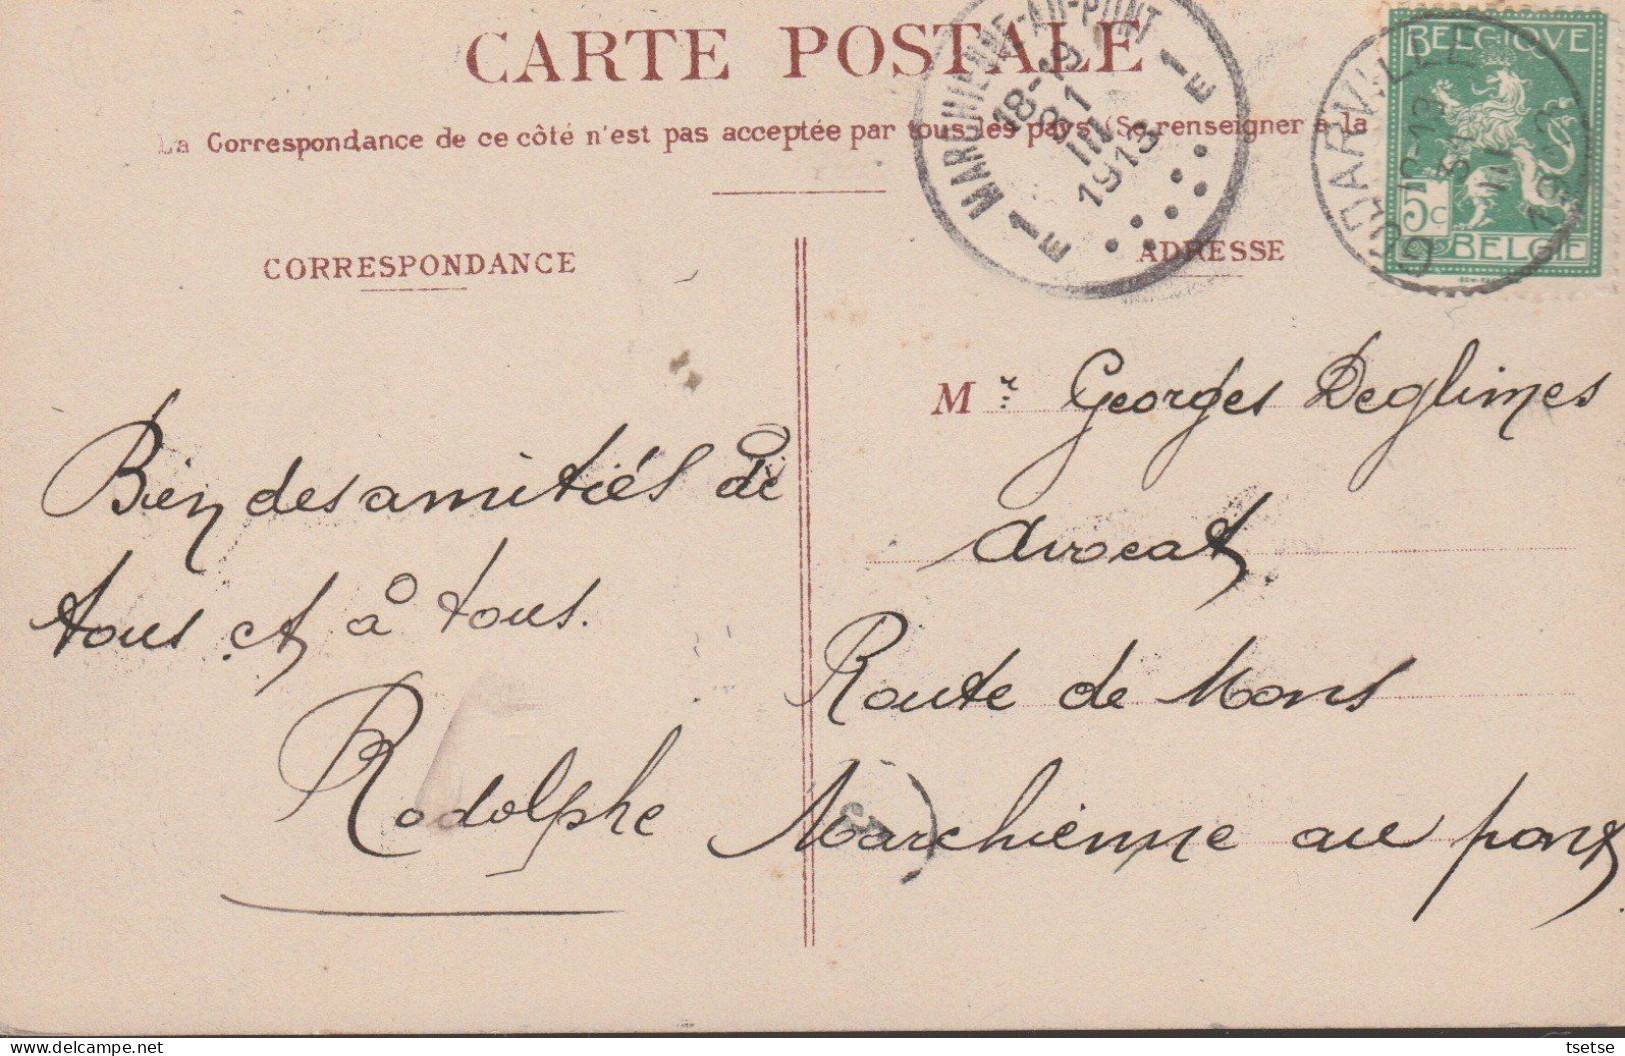 CARTE POSTALE
La Correspondance de ce côté n'est pas acceptée par tous les pays (Se renseigner à la
MARCHIENNE-AU-PONT
18-19
31
III
1913
E 1
1 E
GODARVILLE
12-13
BELGIQUE
5c
BELGIË
CORRESPONDANCE
ADRESSE
Bien des amitiés de
tous et à tous.
Rodolphe
Mr Georges Deglimes
Avocat
Route de Mons
Marchienne au pont
tsetse